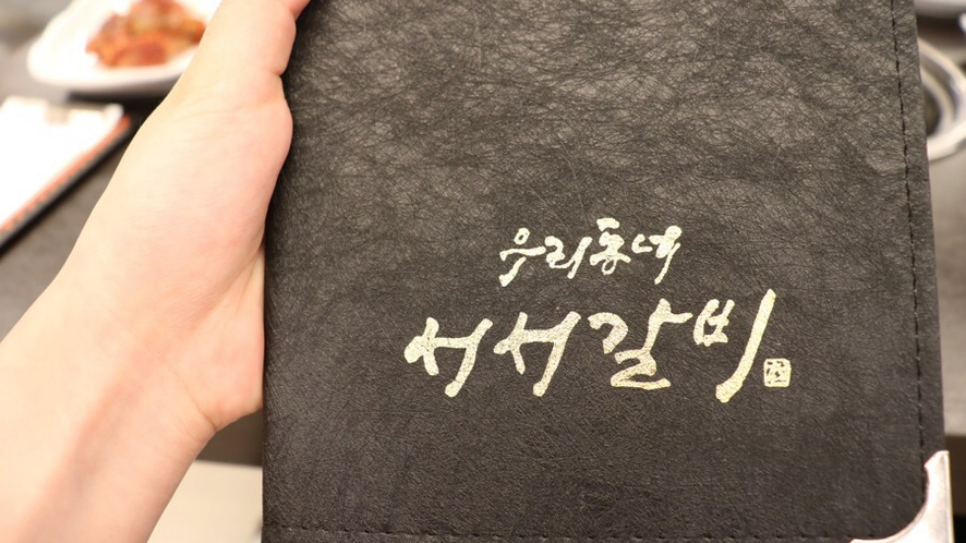 우리동네
서서갈비